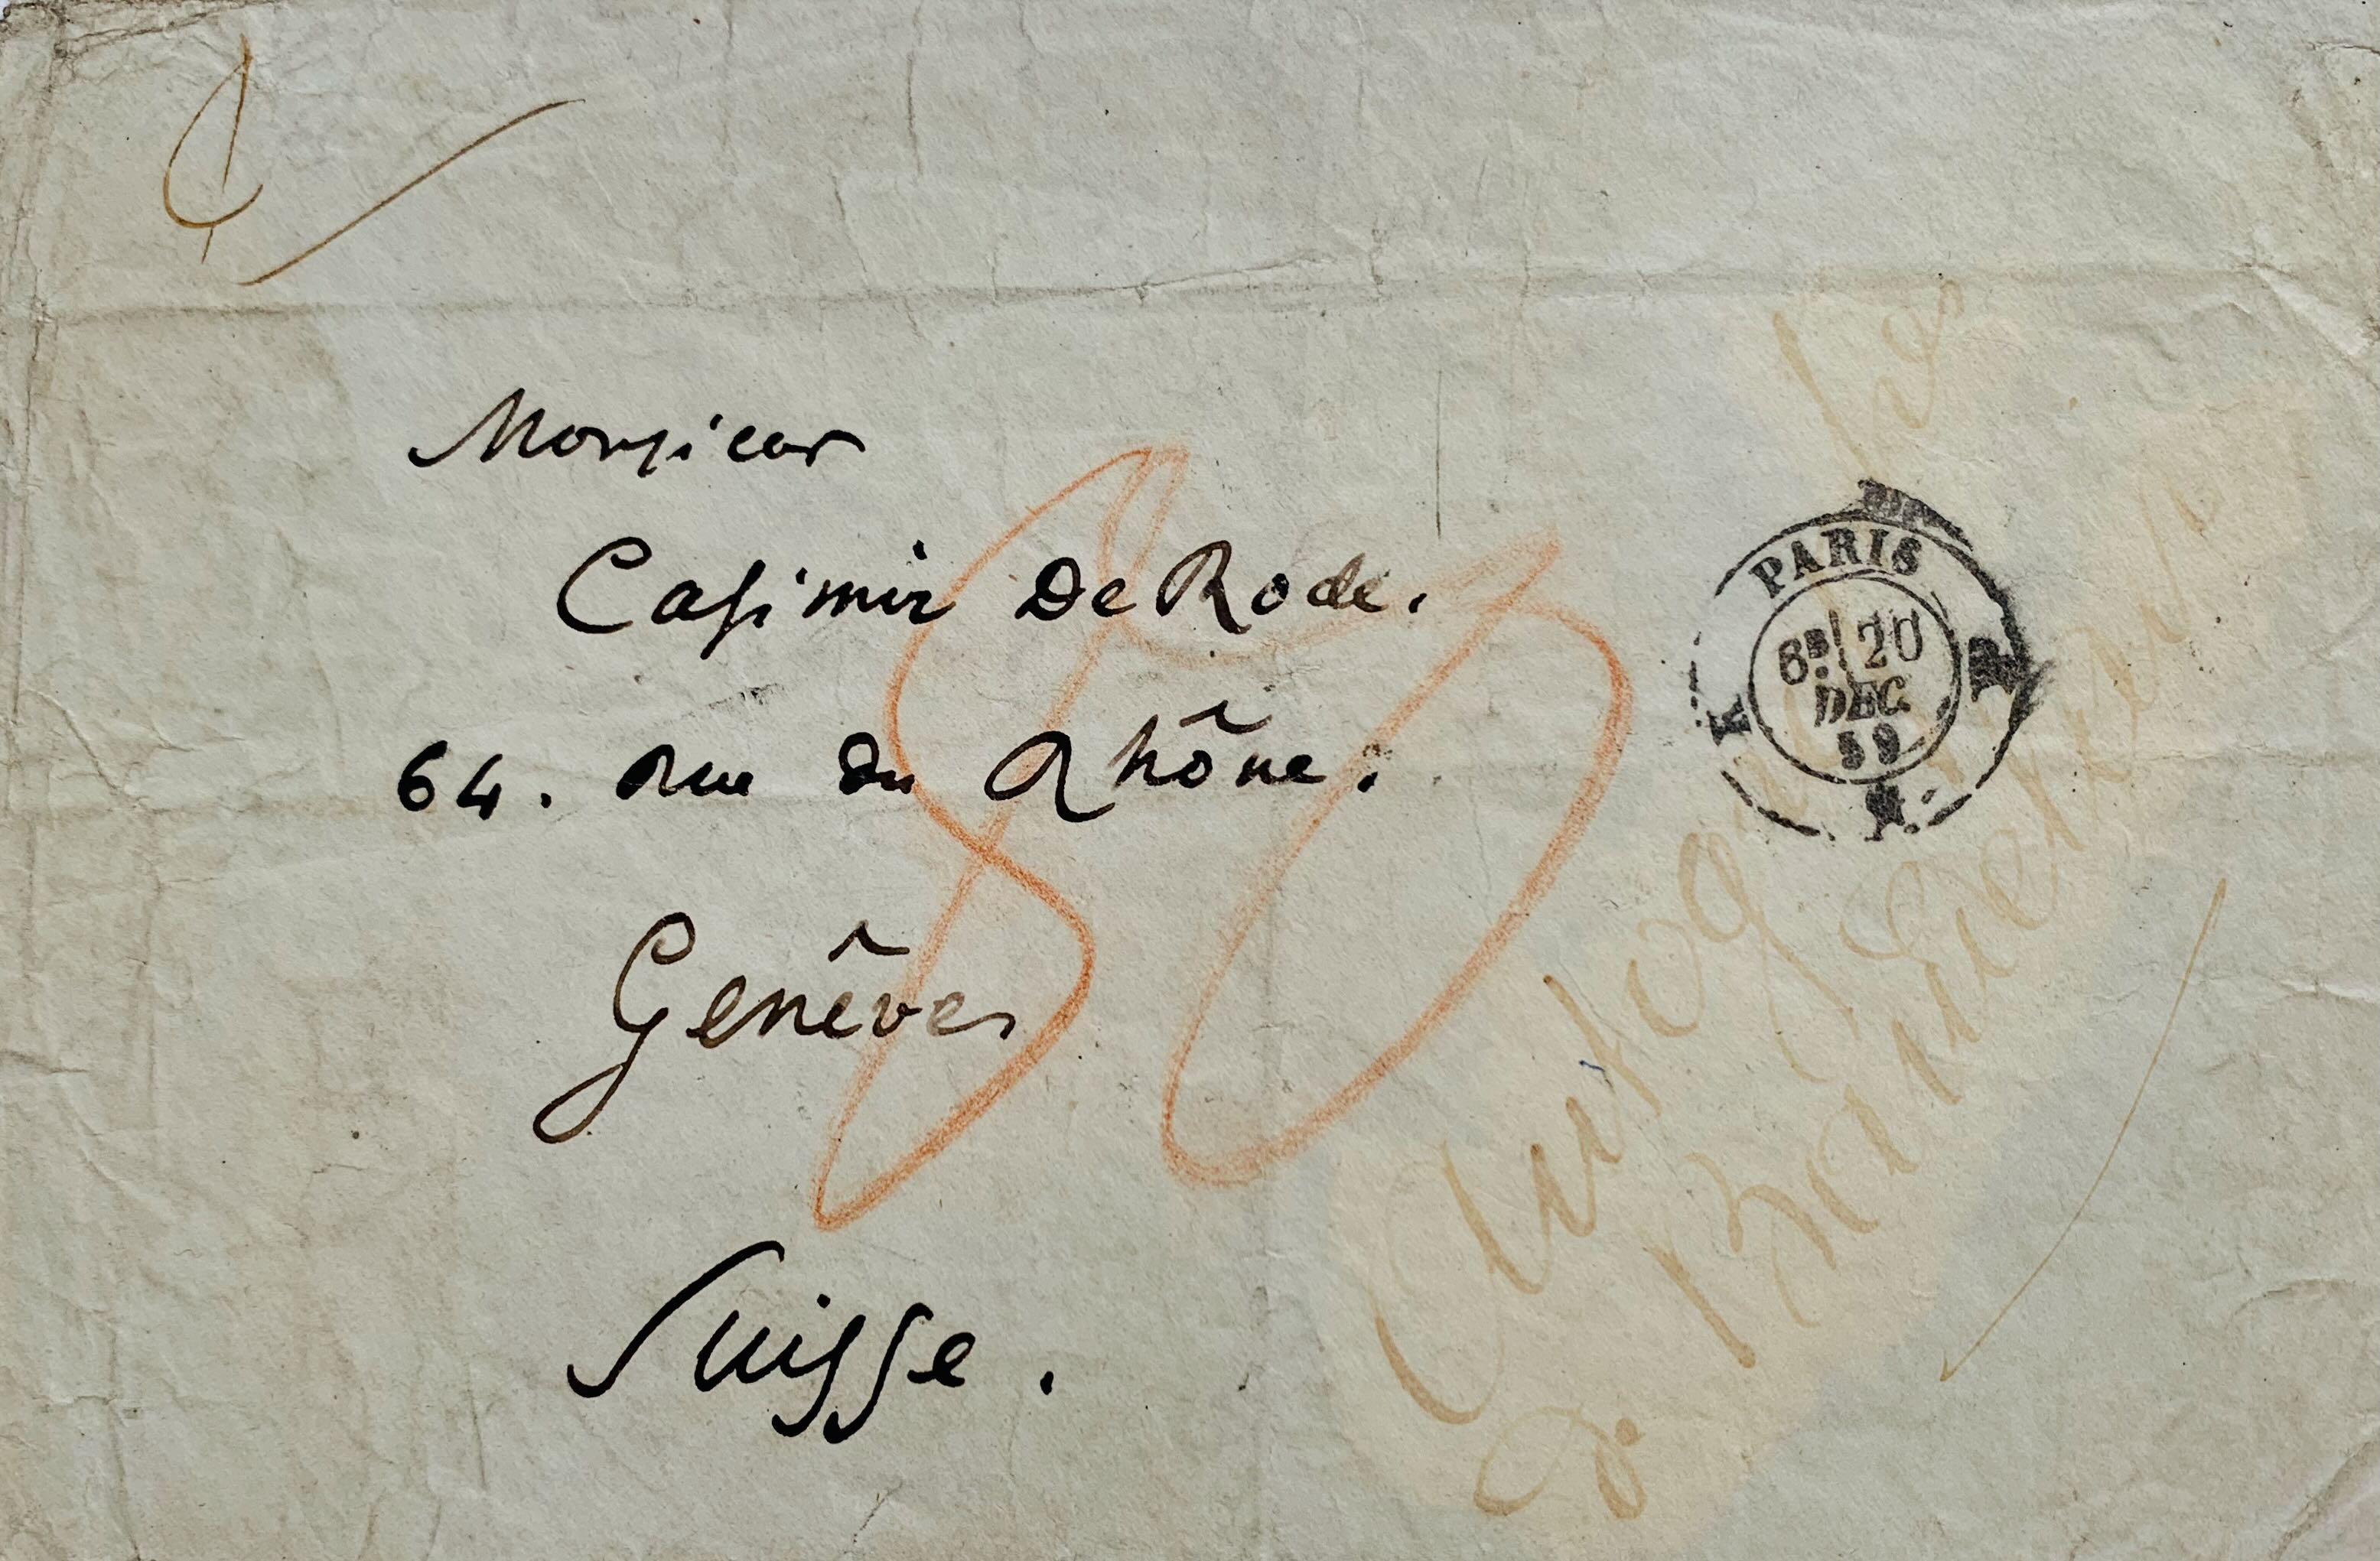 Monsieur
Casimir De Rode.
64. Rue du Rhône.
Genêve
Suisse.
80
PARIS
6E 20
DEC.
59
K
Autographe
Ch. Baudelaire